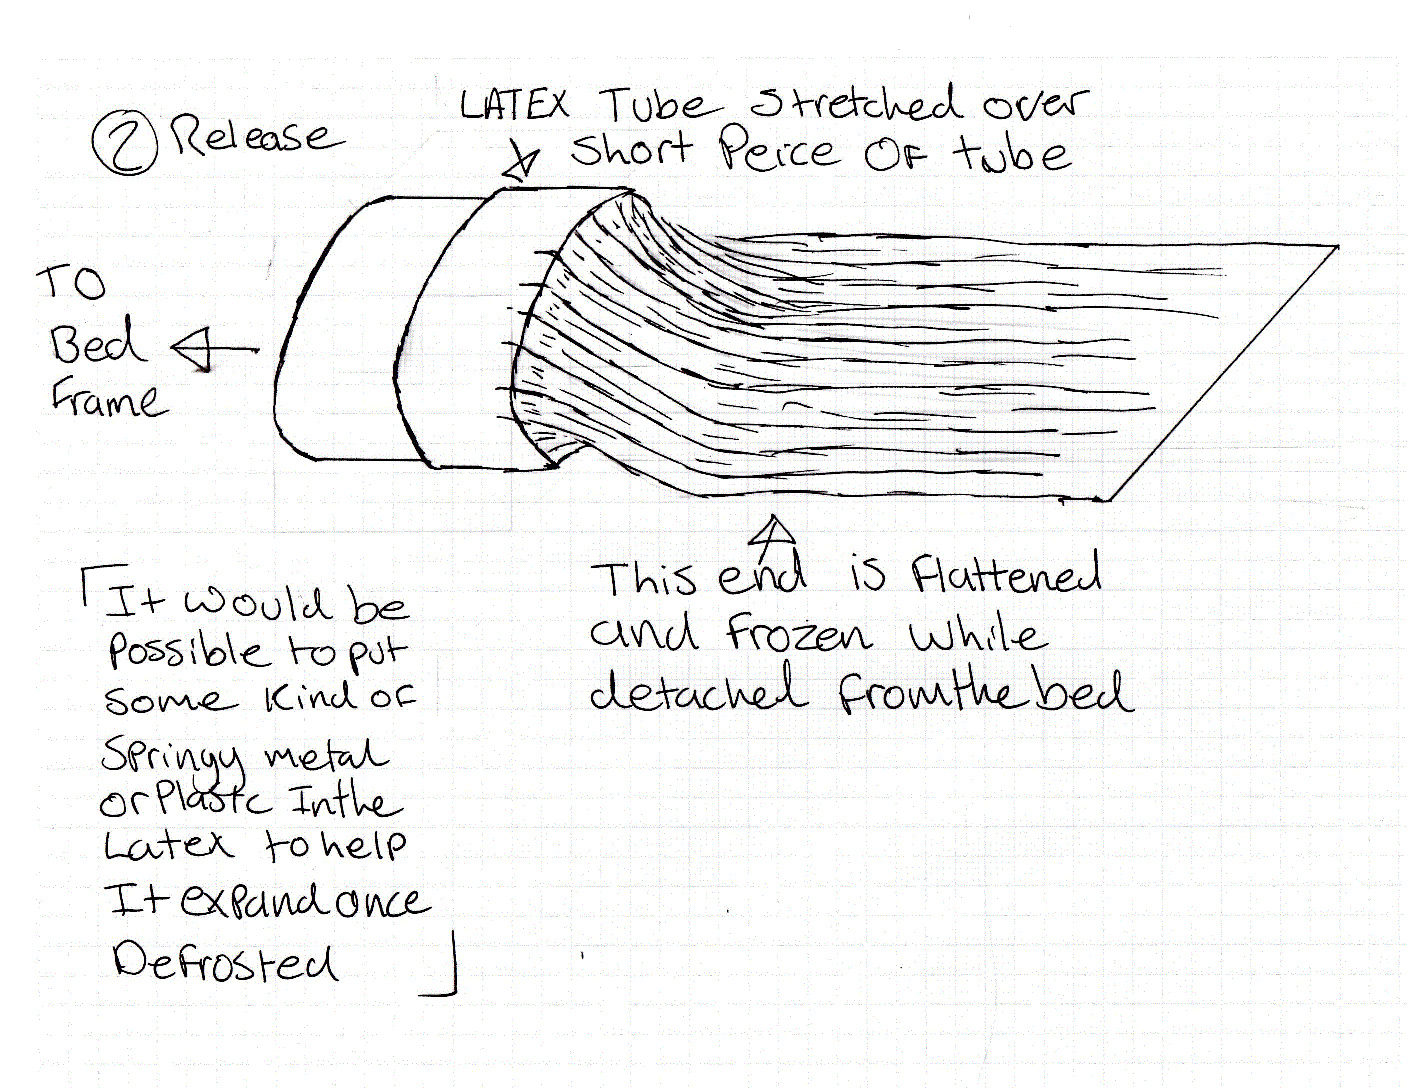 ② Release
LATEX Tube Stretched over
Short Peice OF tube
TO
Bed
Frame
This end is Flattened
and Frozen while
detached from the bed
It would be
Possible to put
some Kind of
Springy metal
or Plastc In the
Latex to help
It expand once
Defrosted